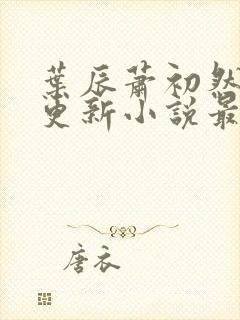 葉辰蕭初然
更新小說最
唐衣